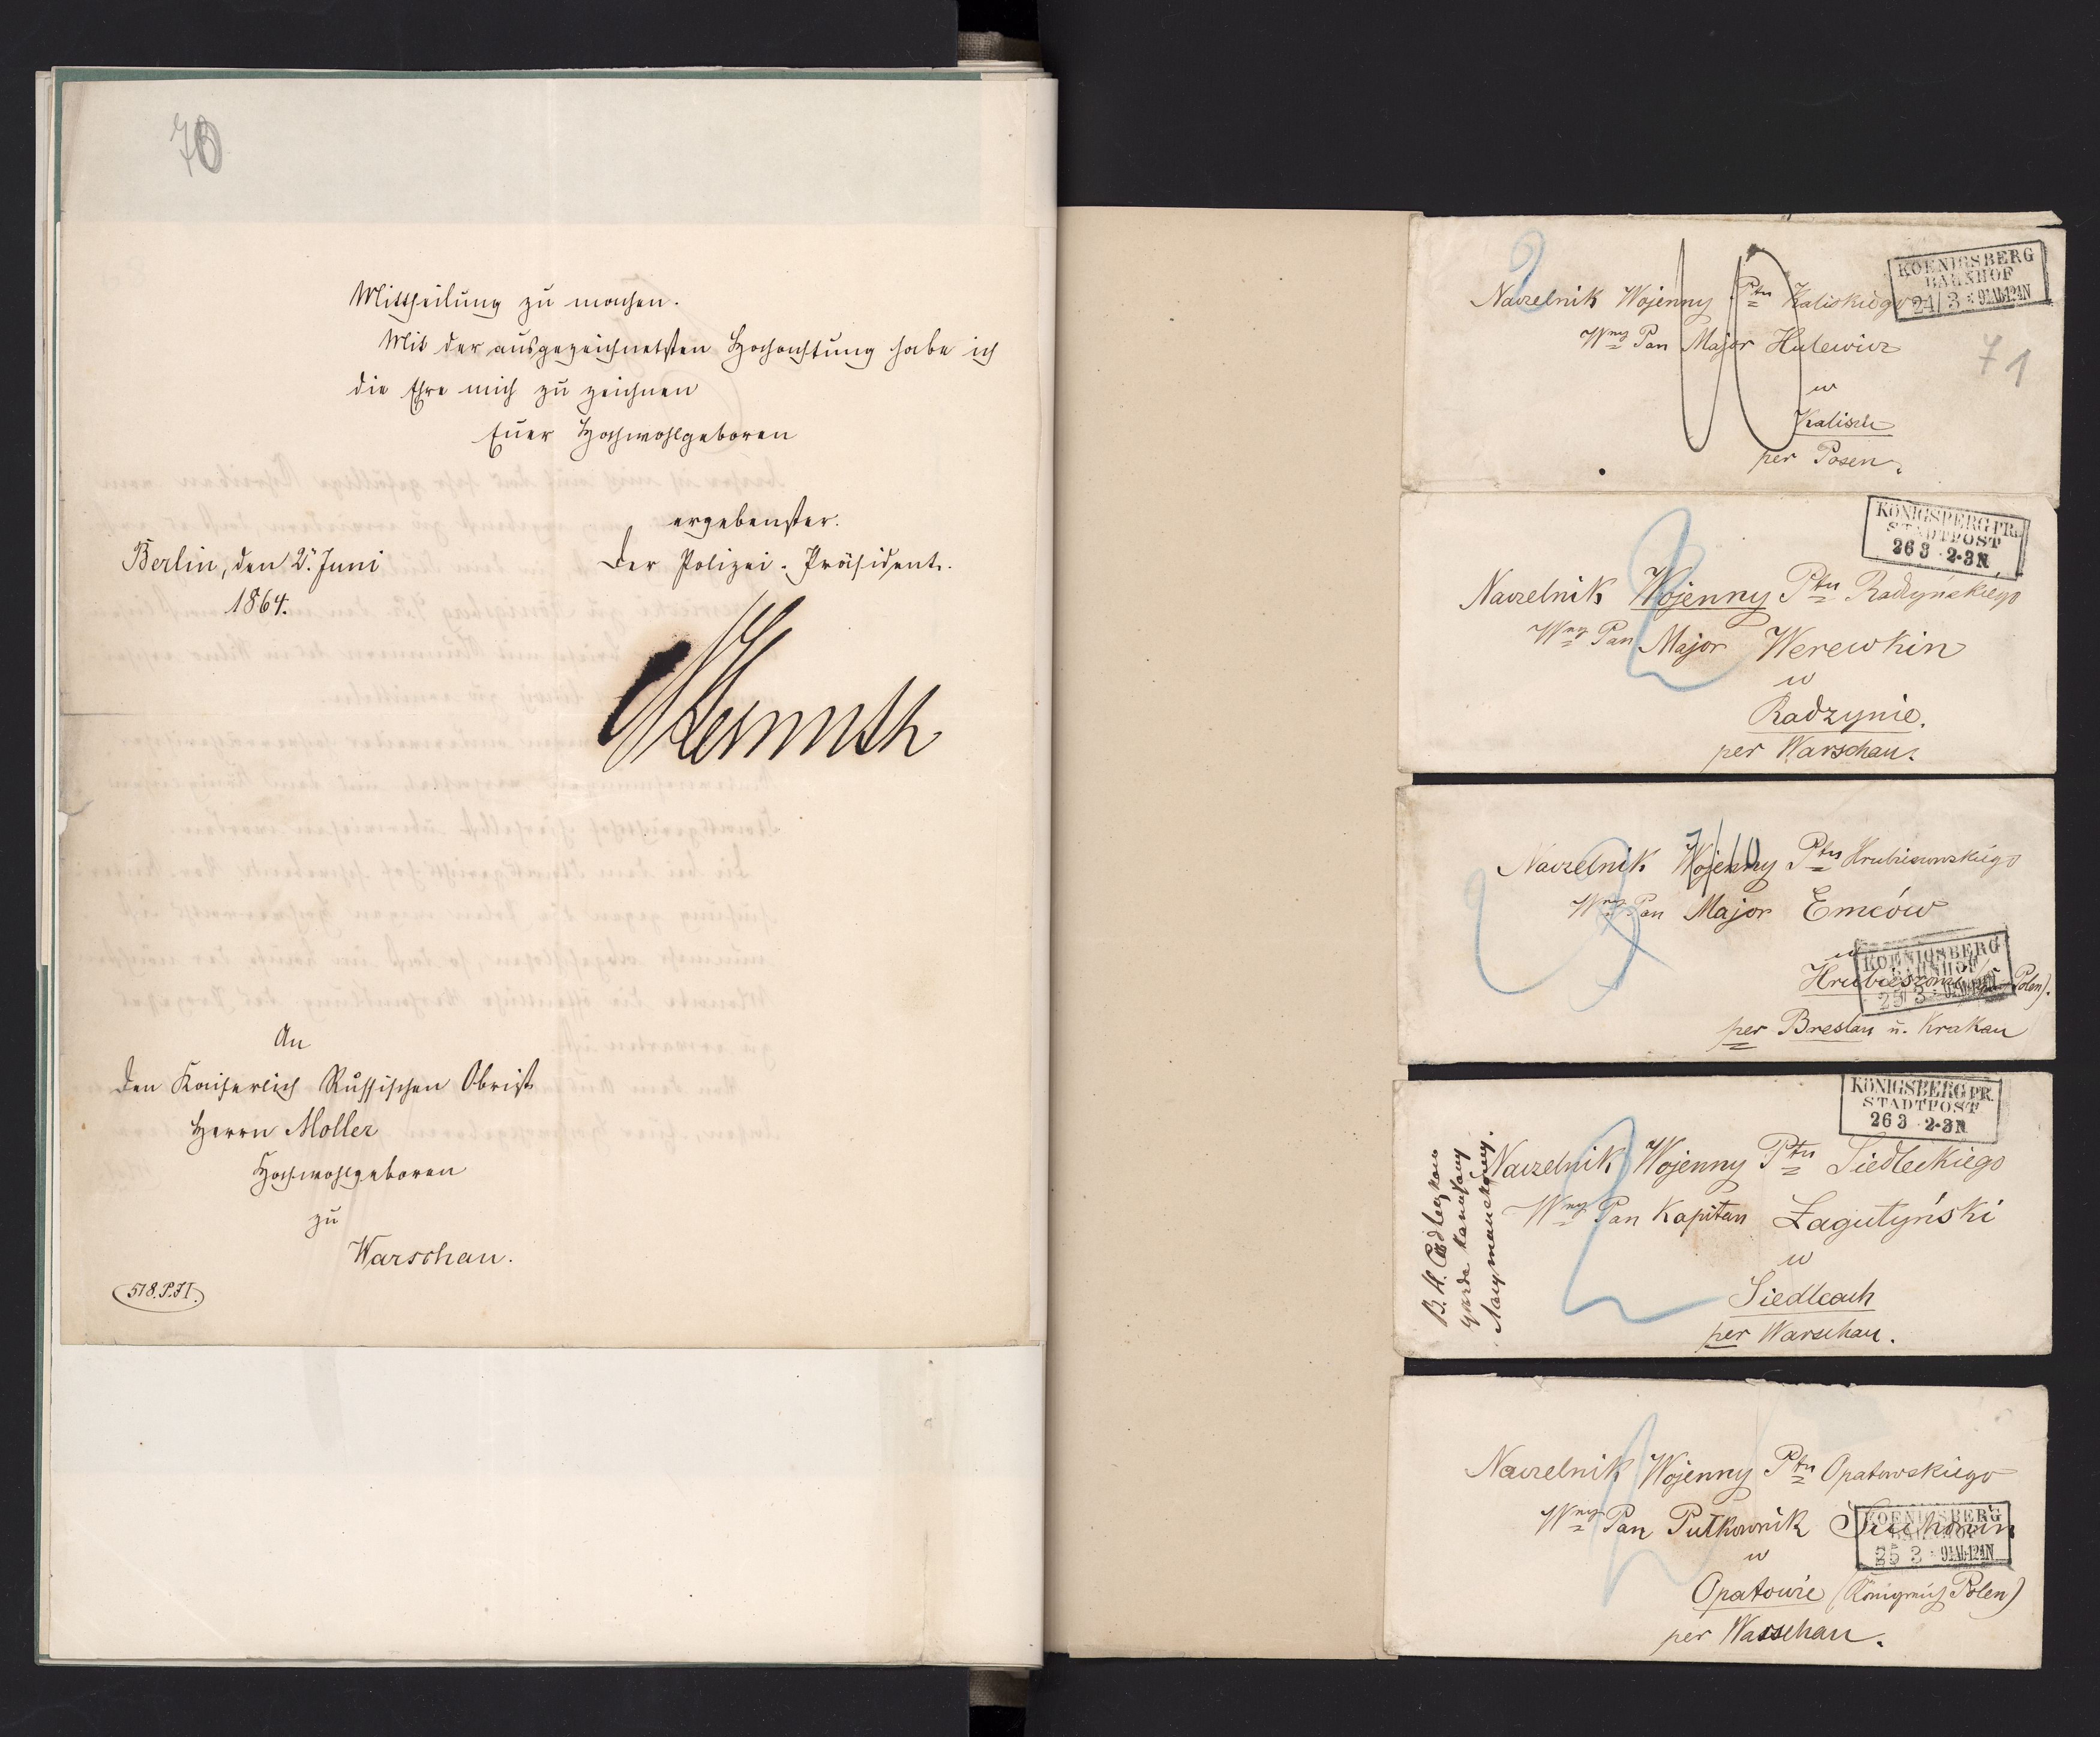 70
Mittheilung zu machen.
Mit der ausgezeichnetsten Hochachtung habe ich
die Ehre mich zu zeichnen
Euer Hochwohlgeboren
ergebenster.
Der Polizei-Präsident.
Berlin, den 2. Juni
1864.
An
den Kaiserlich Russischen Obrist
Herrn Moller
Hochwohlgeboren
zu
Warschau.
518.P.JI.
KOENIGSBERG
BAHNHOF
24/3
Naczelnik Wojenny Ptu Kaliskiego
Wny Pan Major Hulewicz
71
w
Kalisch
per Posen.
KÖNIGSBERG PR.
STADTPOST
26 3 2-3N
Naczelnik Wojenny Ptu Radzyńskiego
Wny Pan Major Werewkin
w
Radzynie.
per Warschau.
7/10
Naczelnik Wojenny Ptu Hrubieszowskiego
Wny Pan Major Emców
w
KOENIGSBERG
BAHNHOF
25 3
Hrubieszowie Polen).
per Breslau u. Krakau
KÖNIGSBERG PR.
STADTPOST
26 3 2-3N
Naczelnik Wojenny Ptu Siedleckiego
Wny Pan Kapitan Zagutyński
w
Siedlcach
per Warschau.
Naczelnik Wojenny Ptu Opatowskiego
Wny Pan Pułkownik
KOENIGSBERG
BAHNHOF
25 3
w
Opatowie (Königreich Polen)
per Warschau.